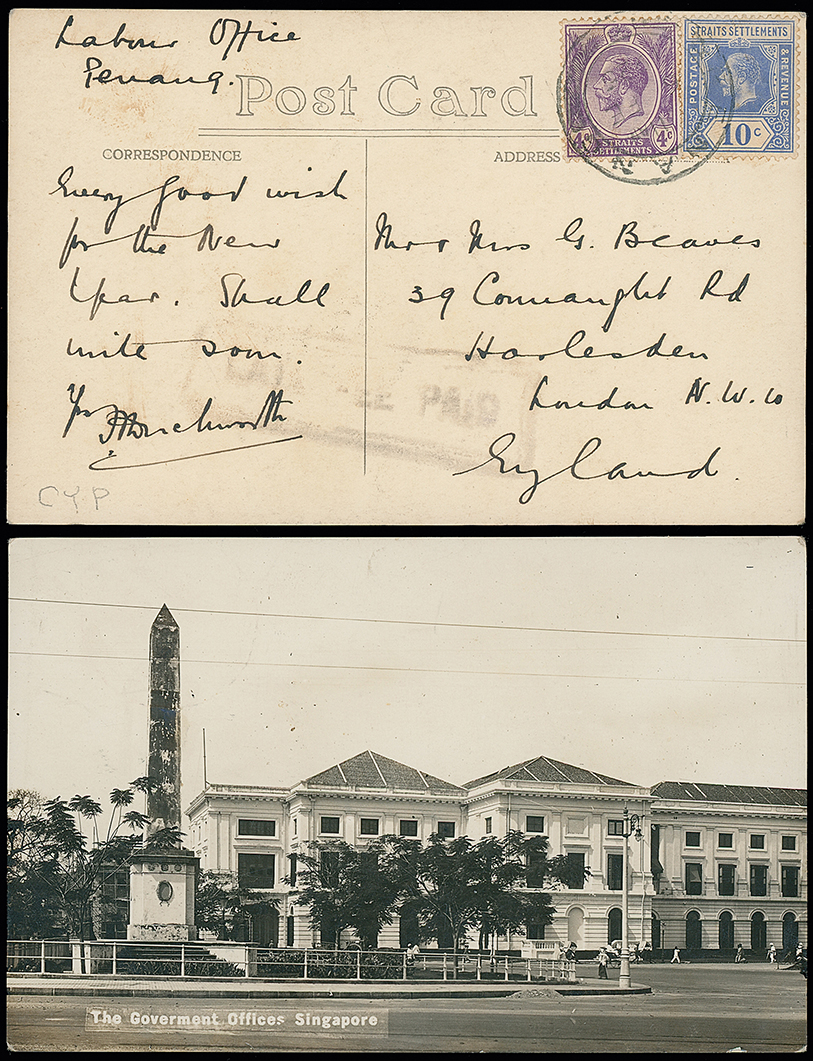 Labour Office
Penang.
Post Card
CORRESPONDENCE
ADDRESS
4c 4c
STRAITS
SETTLEMENTS
STRAITS SETTLEMENTS
POSTAGE
& REVENUE
10 c
Every good wish
for the New
Year. Shall
write soon.
Yrs
Mr & Mrs G. Beaves
39 Connaught Rd
Harlesden
London N.W.10
England.
PAID
CYP
The Goverment Offices Singapore